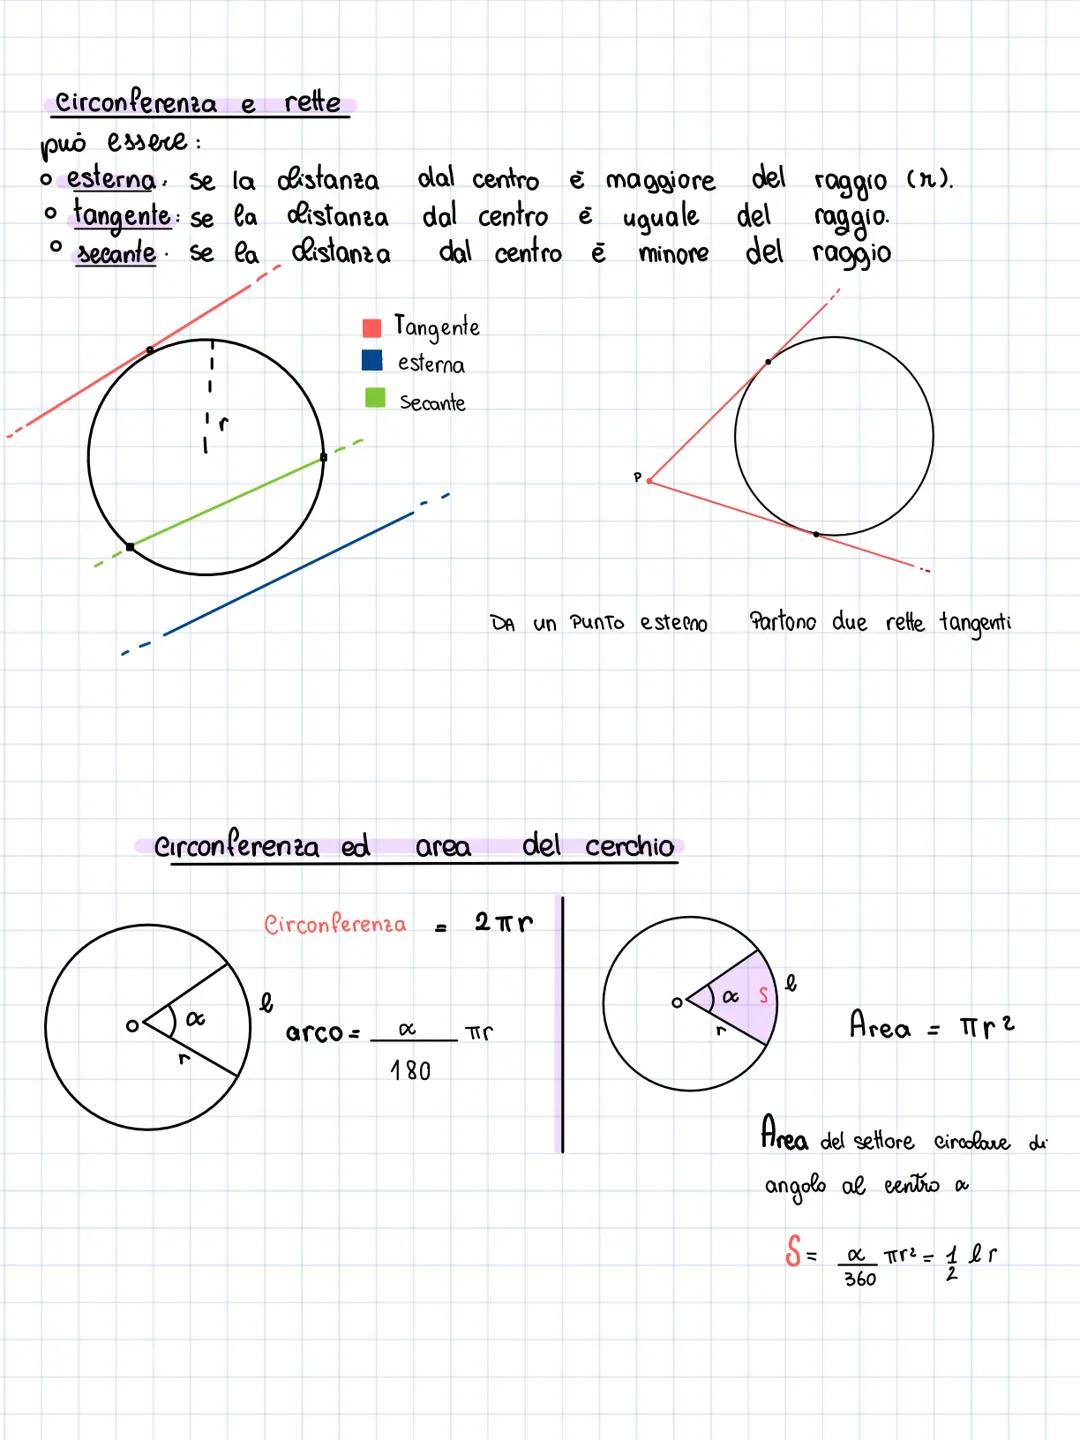 Circonferenza e rette
può essere:
esterna. se la distanza dal centro è maggiore del raggio (r).
tangente: se la distanza dal centro è uguale del raggio.
secante. se la distanza dal centro è minore del raggio
Tangente
esterna
secante
r
P
DA un PUNTO esterno Partono due rette tangenti
Circonferenza ed area del cerchio
Circonferenza = 2πr
O α r l
arco = α/180 πr
O α S r l
Area = πr²
Area del settore circolare di
angolo al centro α
S = α/360 πr² = 1/2 l r